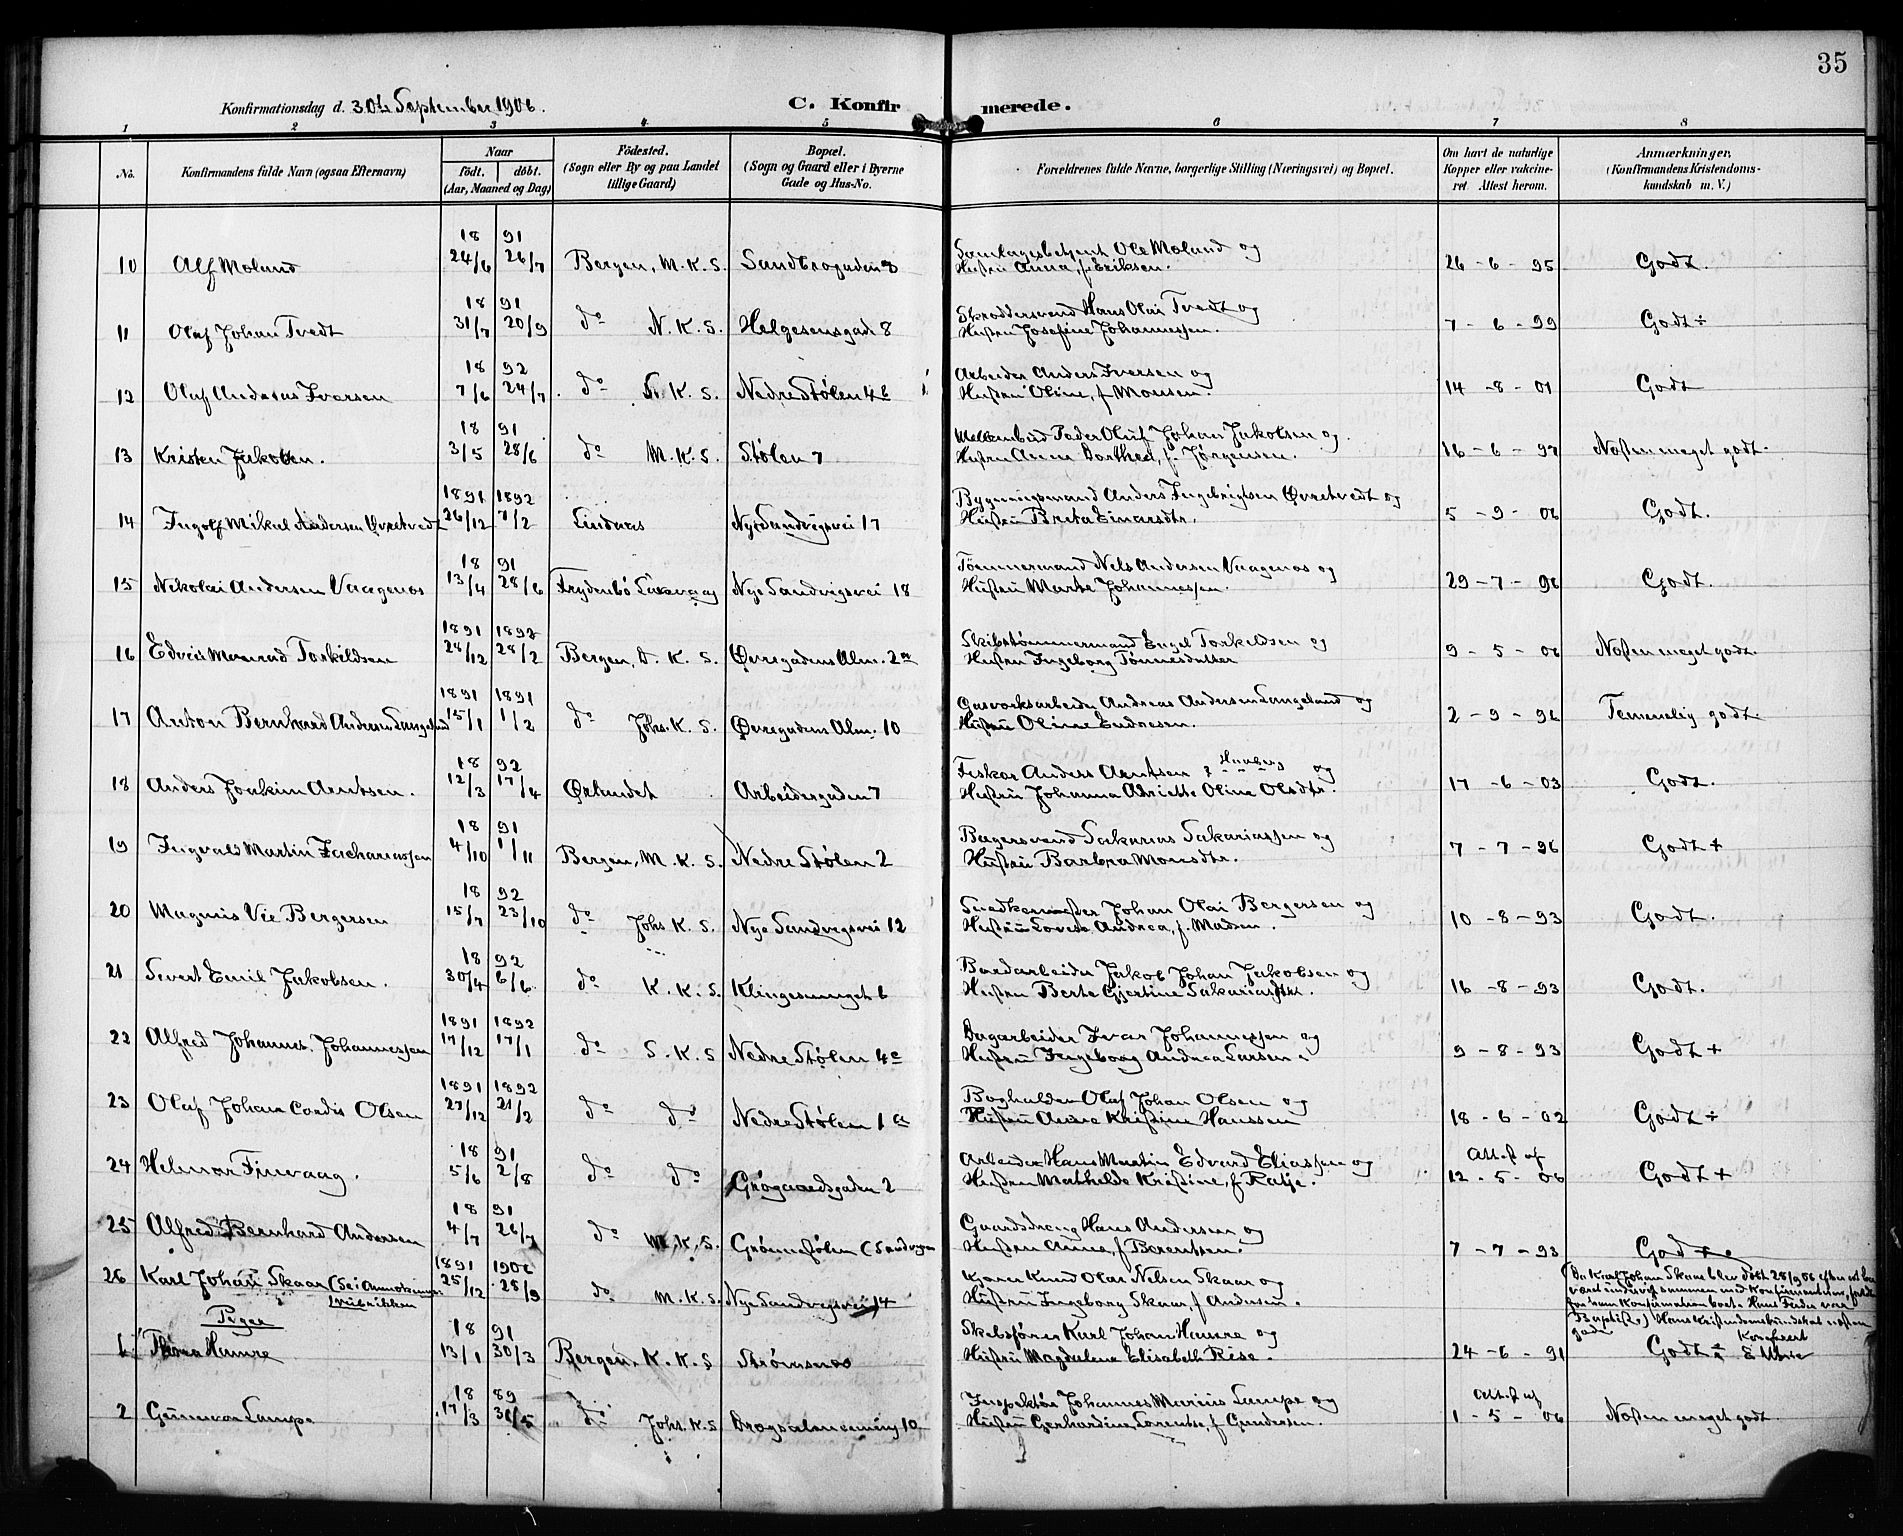 35
Konfirmationsdag d. 30te September 1906.
C. Konfirmerede.
1 2 3 4 5 6 7 8
No. Konfirmandens fulde Navn (ogsaa Efternavn) Naar født. døbt. (Aar, Maaned og Dag) Fødested. (Sogn eller By og paa Landet tillige Gaard) Bopæl. (Sogn og Gaard eller i Byerne Gade og Hus-No. Forældrenes fulde Navne, borgerlige Stilling (Næringsvei) og Bopæl. Om havt de naturlige Kopper eller vakcineret. Attest herom. Anmærkninger, (Konfirmandens Kristendomskundskab m. V.)
10 Alf Moland 1891 24/6 26/7 Bergen, M. K. S. Sandbrogaden 8 Ole Moland og Hustru Anna, f. Eriksen. 26-6-95 Godt.
11 Olaf Johan Tvedt 1891 31/7 20/9 do N. K. S. Helgesensgade 8 Skræddersvend Hans Olai Tvedt og Hustru Josefine Johannessen. 7-6-99 Godt ÷
12 Olaf Andreas Iversen 1892 7/6 24/7 do N. K. S. Nedre Stølen 4b Arbeider Anders Iversen og Hustru Oline, f. Monsen. 14-8-01 Godt
13 Kristen Jakobsen. 1891 3/5 28/6 do M. K. S. Stølen 7 Peder Oluf Johan Jakobsen og Hustru Anna Dorthea, f. Jørgensen. 16-6-97 Næsten meget godt.
14 Ingolf Mikal Andersen Øvretvedt 1891 26/12 1892 7/2 Lindaas Nye Sandvigsvei 17 Bygningsmand Anders Ingebrigtsen Øvretvedt og Hustru Brita Einarsdtr. 5-9-06 Godt.
15 Nikolai Andersen Vaagenes 1891 13/4 28/6 Frydenbø Laxevaag Nye Sandvigsvei 18 Tømmermand Nels Andersen Vaagenes og Hustru Marta Johannessen. 29-7-96 Godt.
16 Edvin Monrad Torkildsen 1891 28/12 1892 28/2 Bergen, D. K. S. Øvregadens Alm. 2a Skibstømmermand Engel Torkeldsen og Hustru Ingeborg Tønnesdatter 9-5-06 Næsten meget godt.
17 Anton Bernhard Andersen Langeland 1891 15/1 1891 1/2 do Johs. K. S. Øvregadens Alm. 10 Gasværksarbeider Andreas Andersen Langeland og Hustru Oline Endresen. 2-9-96 Temmelig godt.
18 Anders Joakim Arntsen. 1892 12/3 17/4 Ørlandet Arbeidergaden 7 Fisker Anders Arntsen og Hustru Johanna Adriette Oline Olsdtr. 17-6-03 Godt.
19 Ingvald Martin Zachariassen 1891 4/10 1/11 Bergen, M. K. S. Nedre Stølen 2 Bagersvend Sakarias Sakariassen og Hustru Barbra Monsdtr. 7-7-96 Godt +
20 Magnus Vie Bergersen 1892 15/7 23/10 do Johs K. S. Nye Sandvigsvei 12 Snedkermester Johan Olai Bergersen og Hustru Lovise Andrea, f. Madsen. 10-8-93 Godt.
21 Severt Emil Jakobsen. 1892 30/4 6/6 do K. K. S. Klingesmuget 6 Jakob Johan Jakobsen og Hustru Berte Gjertine Sakariasdtr. 16-8-93 Godt.
22 Alfred Johannes Johannessen 1891 17/12 1892 17/1 do S. K. S Nedre Stølen 4c Dagarbeider Ivar Johannessen og Hustru Ingeborg Andrea Larsen. 9-8-93 Godt +
23 Olaf Johan Cordis Olsen 1891 27/12 1892 21/2 do do Nedre Stølen 1a Bogholder Olaf Johan Olsen og Hustru Anna Kristine Hanssen 18-6-02 Godt ÷
24 Helmer Finvaag. 1891 5/6 2/8 do do Grøgaardsgaden 2 Arbeider Hans Martin Edvard Eliassen og Hustru Mathilde Kristine, f. Ratje. Attest af 12-5-06 Godt +
25 Alfred Bernhard Andersen 1891 4/7 26/7 do M. K. S. Grønnestølen (Sandvigen Gaardsdreng Hans Andersen og Hustru Anne, f. Berentsen. 7-7-93 Godt +
26 Karl Johan Skaar (Se i Anmærkningsrubrikken 1891 25/12 1906 25/9 do M. K. S. Nye Sandvigsvei 14 Kjører Knud Olai Nilsen Skaar og Hustru Ingeborg Skaar, f. Andersen. Da Karl Johan Skaar blev døbt 25/9 06 efter at have været undervist sammen med Konfirmanterne, faldt for ham Konfirmation bort. Hans Fader var Baptist. Hans Kristendomskundskab næsten godt
Piger
1. Thora Hamre 1891 13/1 30/3 Bergen, K. K. S Strømsnes Skibsfører Karl Johan Hamre og Hustru Magdalena Elisabeth Riise. 24-6-91 Godt ÷
2 Gunvor Lampe 1889 17/3 31/5 do Johs. K. S. 10 Inspektør Johannes Marius Lampe og Hustru Gerhardine Lorentse, f. Gundersen. Attest af 1-5-06 Næsten meget godt